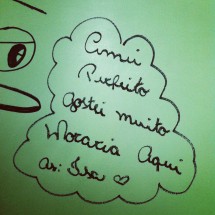 Amei
Perfeito
Gostei muito
Moraria Aqui
Ass: Isa ♡